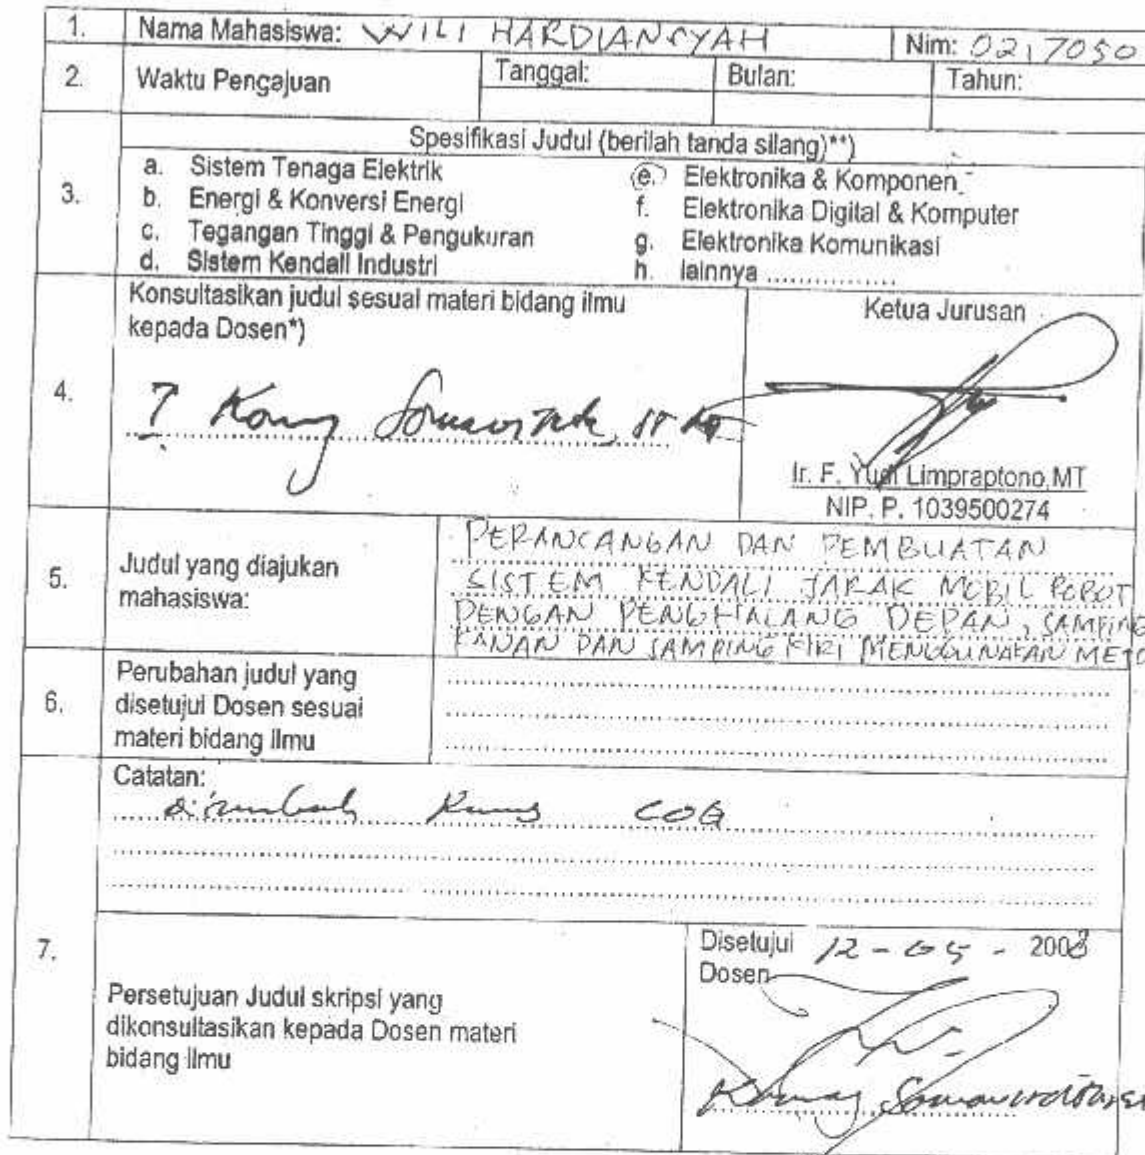 1. Nama Mahasiswa: WILI HARDIANSYAH Nim: 0217050
2. Waktu Pengajuan Tanggal: Bulan: Tahun:
3. Spesifikasi Judul (berilah tanda silang)**)
a. Sistem Tenaga Elektrik
b. Energi & Konversi Energi
c. Tegangan Tinggi & Pengukuran
d. Sistem Kendali Industri
e. Elektronika & Komponen
f. Elektronika Digital & Komputer
g. Elektronika Komunikasi
h. lainnya ................
4. Konsultasikan judul sesuai materi bidang ilmu
kepada Dosen*)
Ketua Jurusan
Ir. F. Yudi Limpraptono, MT
NIP. P. 1039500274
5. Judul yang diajukan
mahasiswa:
PERANCANGAN DAN PEMBUATAN
SISTEM KENDALI JARAK MOBIL ROBOT
DENGAN PENGHALANG DEPAN, SAMPING
KANAN DAN SAMPING KIRI MENGGUNAKAN METO
6. Perubahan judul yang
disetujui Dosen sesuai
materi bidang ilmu
Catatan:
7. Persetujuan Judul skripsi yang
dikonsultasikan kepada Dosen materi
bidang ilmu
Disetujui 12-05-2008
Dosen